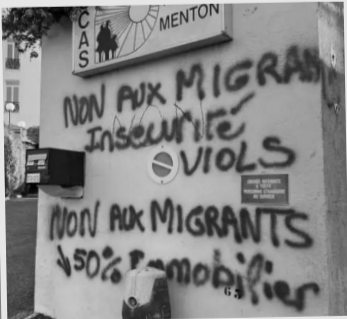 CCAS
MENTON
NON AUX MIGRAN
Insécurité
VIOLS
NON AUX MIGRANTS
↓50% Immobilier